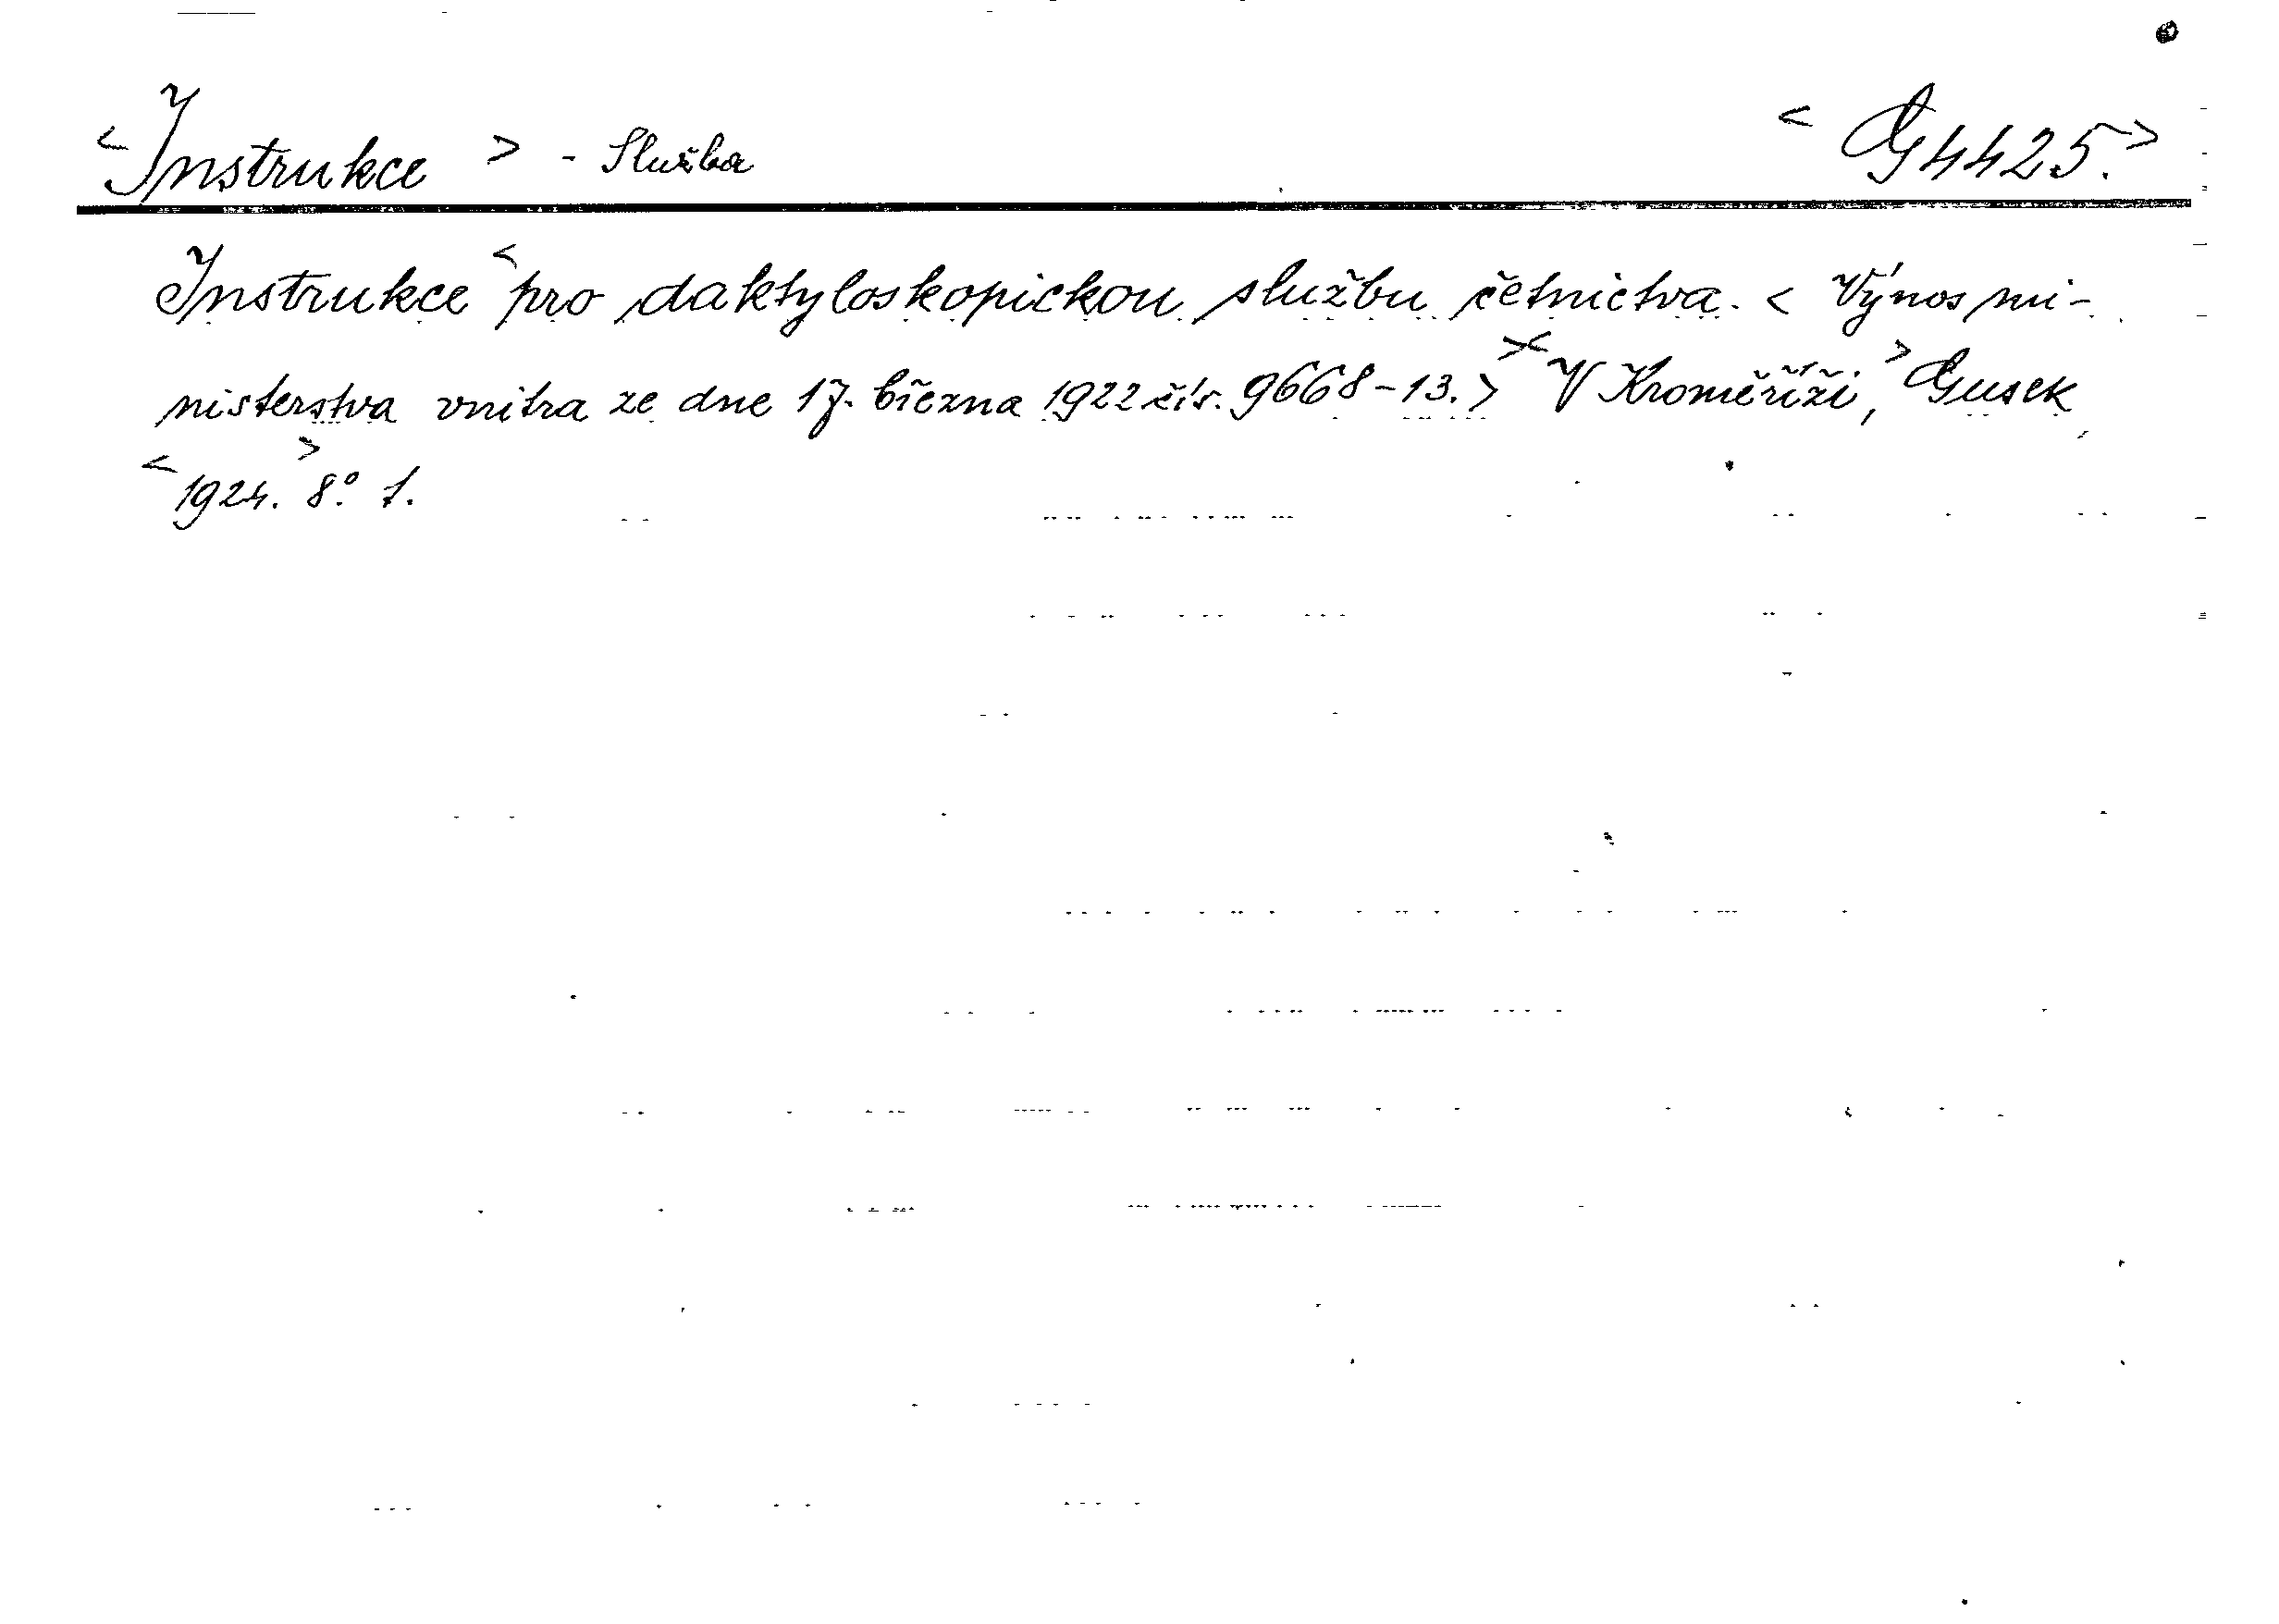 < Instrukce > - Služba < G 4425. >
Instrukce < pro daktyloskopickou službu četnictva. < Výnos mi-
nisterstva vnitra ze dne 17. března 1922 čís. 9668-13. > >< V Kroměříži, > Gusek,
< 1924. > 8° 1.